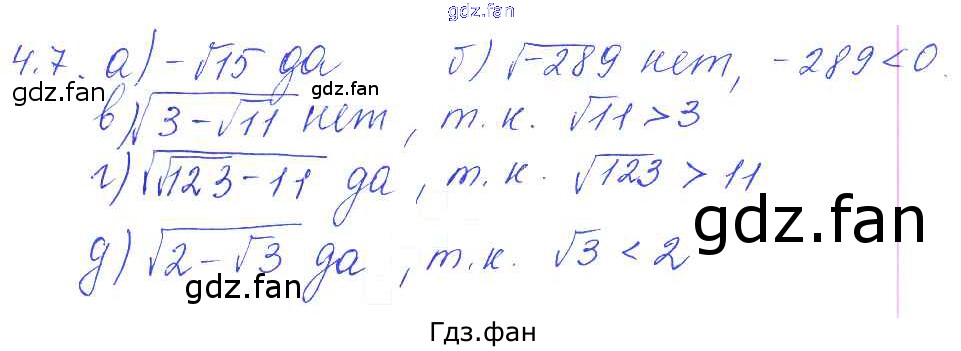 gdz.fan
4.7. а) -√15 да б) √-289 нет, -289<0.
gdz.fan gdz.fan
в) √3-√11 нет, т.к. √11>3
г) √√123-11 да, т.к. √123 > 11
gdz.fan
д) √2-√3 да, т.к. √3 < 2
gdz.fan
Гдз.фан